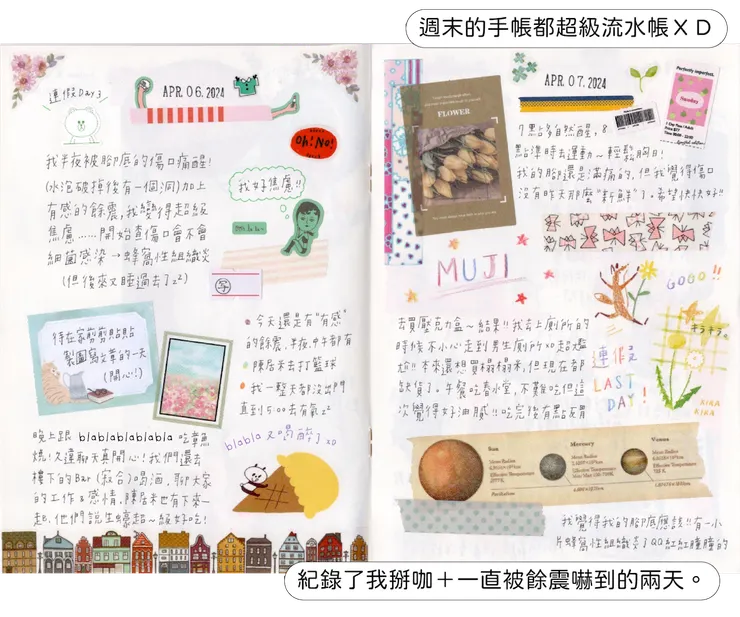 週末的手帳都超級流水帳ＸＤ
連假Day3
APR 06.2024
Oh! No!
我半夜被腳底的傷口痛醒!
(水泡破掉後有一個洞)加上
有感的餘震,我變得超級
焦慮……開始查傷口會不會
細菌感染→蜂窩性組織炎
(但後來又睡過去了z²)
我好焦慮!!
bla.bla~
写
待在家剪剪貼貼
製圖寫文章的一天
(開心!)
今天還是有"有感"
的餘震,半夜、中午都有
陳居米去打籃球
我一整天都沒出門
直到5:00去有氧z²
晚上跟 blablablablabla 吃章魚
燒!久違聊天真開心!我們還去
樓下的Bar(寂合)喝酒,聊大家
的工作&感情,陳居米也有下來一
起、他們說生蠔超~級好吃!
blabla又喝醉了XD
APR 07.2024
7點多自然醒,8
點準時去運動~輕鬆胸日!
我的腳還是滿痛的,但我覺得傷口
沒有昨天那麼"新鮮"了。希望快快好!!
FLOWER
Perfectly imperfect.
MUJI
GOGO!!
去買壓克力盒~結果!!我去上廁所的
時候不小心走到男生廁所XD超大尷
尬!!本來還想買棉褐米,但現在都
缺貨了。午餐吃春水堂,不難吃但這
次覺得好油膩!!吃完後有點反胃
連假
LAST
DAY!
キラキラ。
KIRA
KIRA
Sun
Mean Radius
Effective Temperature
Mercury
Mean Radius
Effective Temperature
Venus
Mean Radius
Effective Temperature
我覺得我的腳底應該!!有一小
片蜂窩性組織炎了QQ紅紅腫腫的
紀錄了我掰咖＋一直被餘震嚇到的兩天。